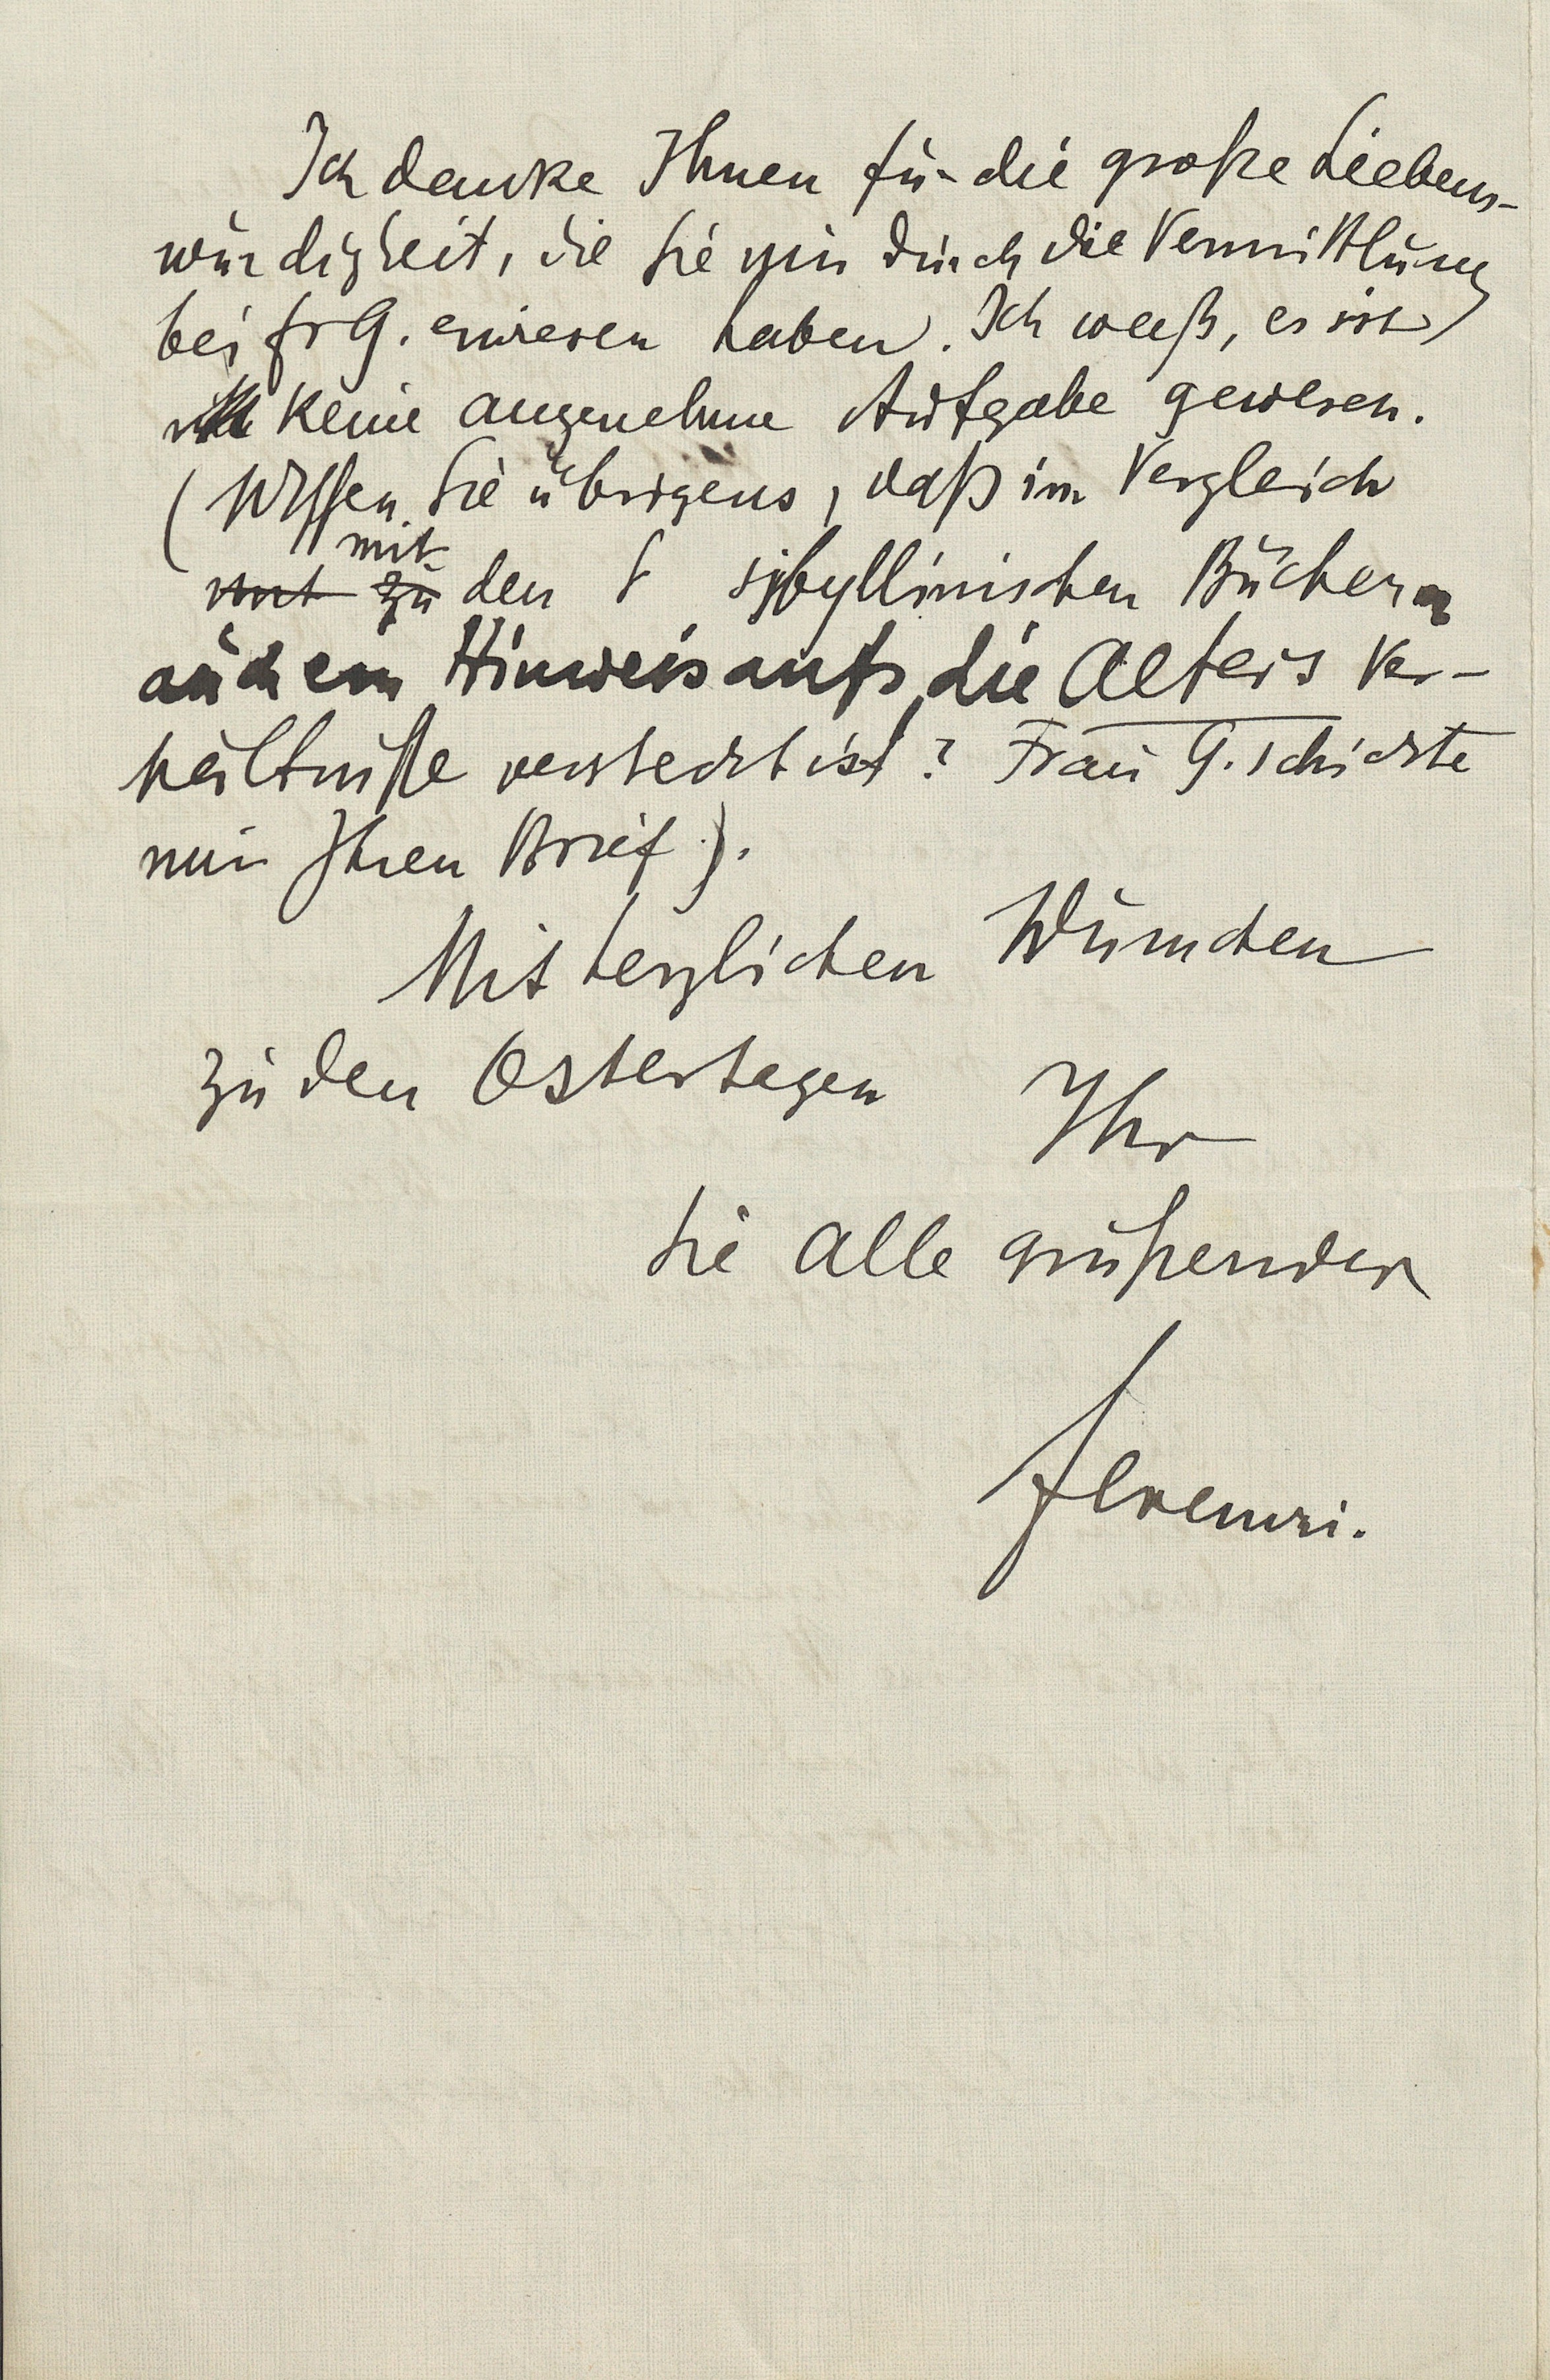 Ich danke Ihnen für die große Liebens-
würdigkeit, die Sie mir durch die Vermittlung
bei Fr G. erwiesen haben. Ich weiß, es ist
keine angenehme Aufgabe gewesen.
(Wissen Sie übrigens, daß im Vergleich
mit
mit zu den sibyllinischen Büchern
auch ein Hinweis auf die Alters Ver-
hältnisse versteckt ist? Frau G. schickte
mir Ihren Brief).
Mit herzlichen Wünschen
zu den Ostertagen Ihr
Sie alle grüßender
Ferenczi.